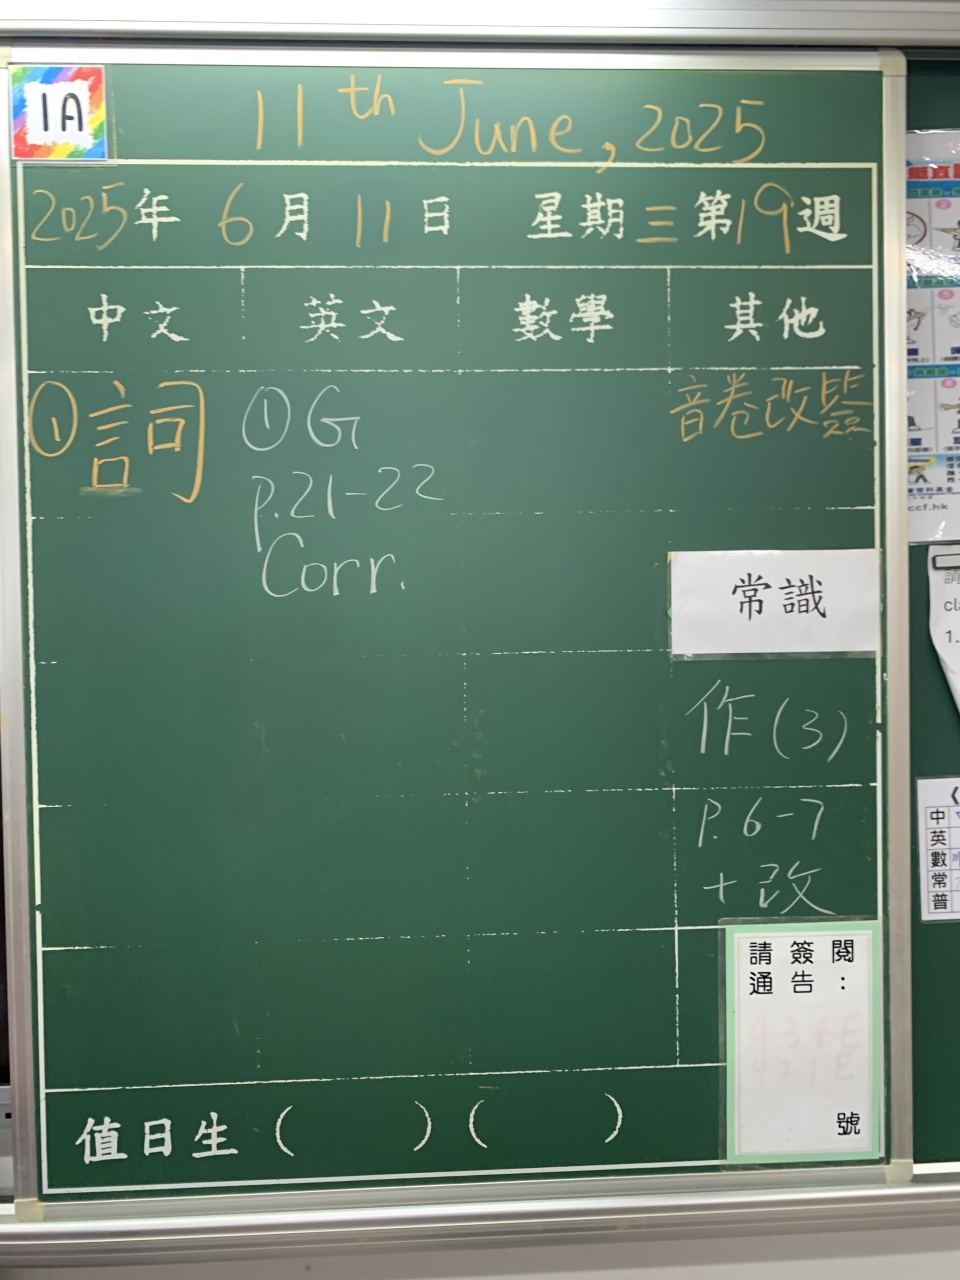 1A
11th June, 2025
2025年 6月 11日 星期三 第19週
中文 英文 數學 其他
①詞
①G
p.21-22
Corr.
音卷改簽
常識
作(3)
P.6-7
+改
請簽閱
通告：
號
值日生 ( ) ( )
ccf.hk
cla
1.
中
英
數
常
普